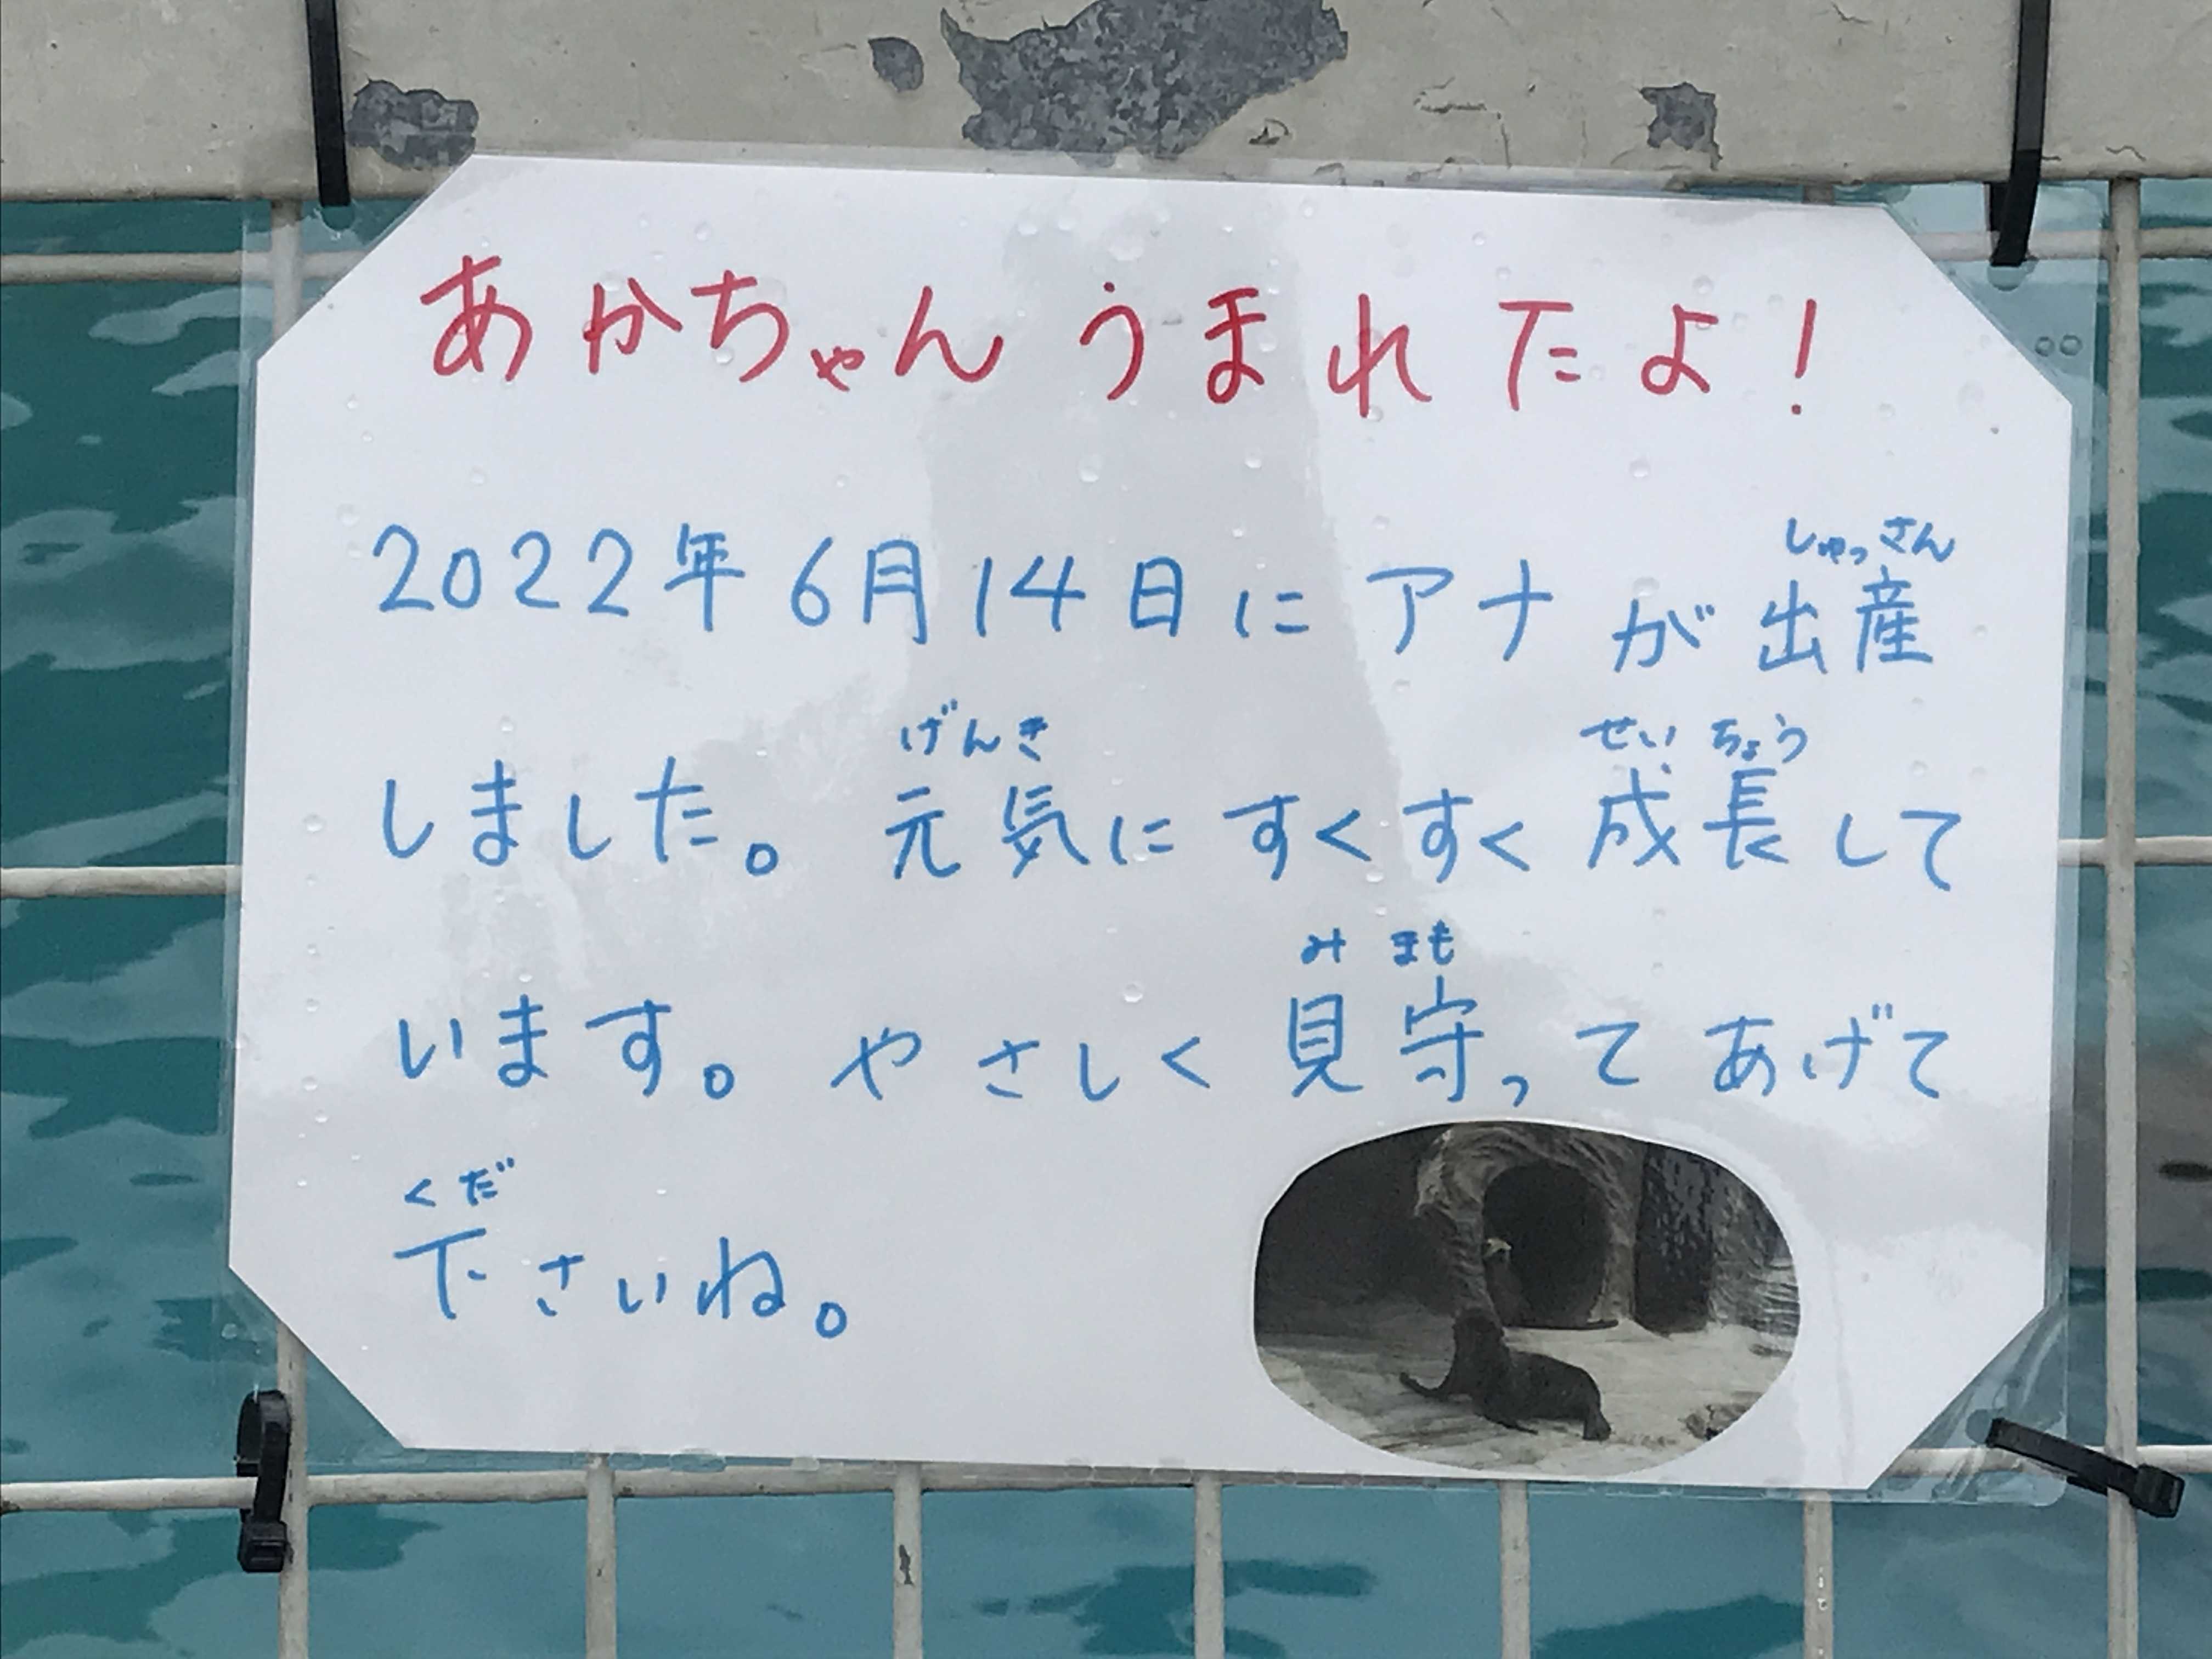 あかちゃん うまれたよ!
2022年6月14日にアナが出産
しゅっさん
しました。元気にすくすく成長して
げんき せいちょう
います。やさしく見守ってあげて
みまも
下さいね。
くだ